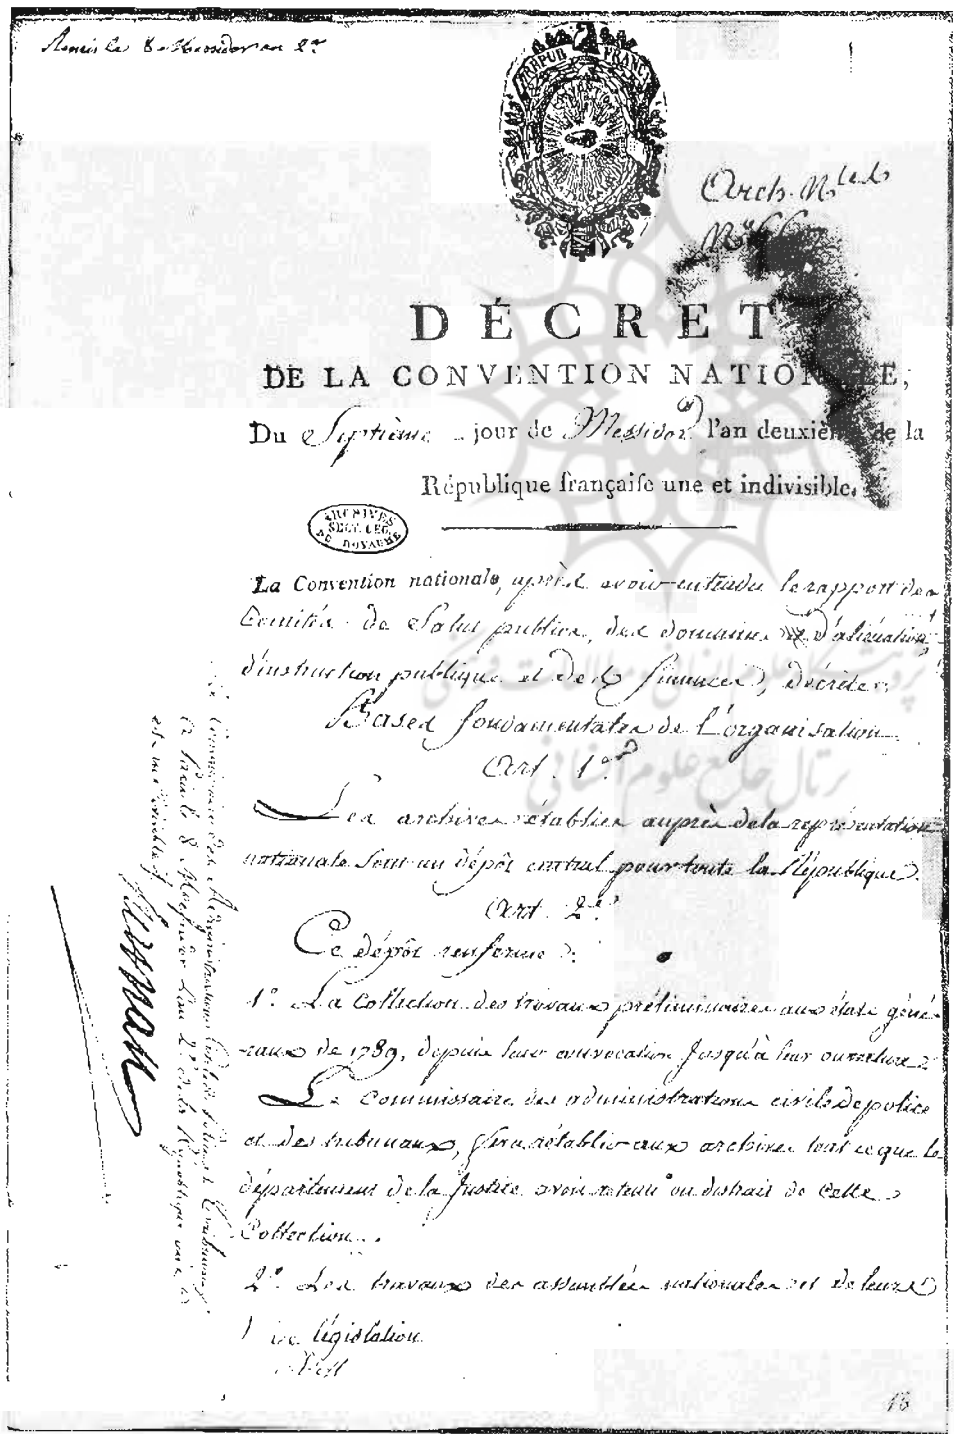 le 8 Messidor an 2e
RÉPUB FRANÇ
Arch. Nles
DÉCRET
DE LA CONVENTION NATIONALE,
Du Septième jour de Messidor l'an deuxième de la
République françaiſe une et indivisible.
ARCHIVES
SECT. LEG.
DU ROYAUME
La Convention nationale, après avoir entendu le rapport des
Comités de Salut public, des domaines et d'aliénation,
d'instruction publique et des finances, décrète:
Bases fondamentales de l'organisation
Art. 1er
Les archives établies auprès de la représentation
nationale sont un dépôt central pour toute la République.
Art. 2e
Ce dépôt renferme:
1° La Collection des travaux préliminaires aux états géné-
raux de 1789, depuis leur convocation jusqu'à leur ouverture
Le Commissaire des administrations civiles de police
et des tribunaux, fera rétablir aux archives tout ce que le
département de la Justice avoit retenu ou distrait de cette
Collection.
2° Les travaux des assemblées nationales et de leurs
de législation
Le Commissaire des Administrations Civiles de Police et Tribunaux
le 8 Messidor L'an 2e de la République une &
indivisible
Herman
پژوهشگاه علوم انسانی و مطالعات فرهنگی
پرتال جامع علوم انسانی